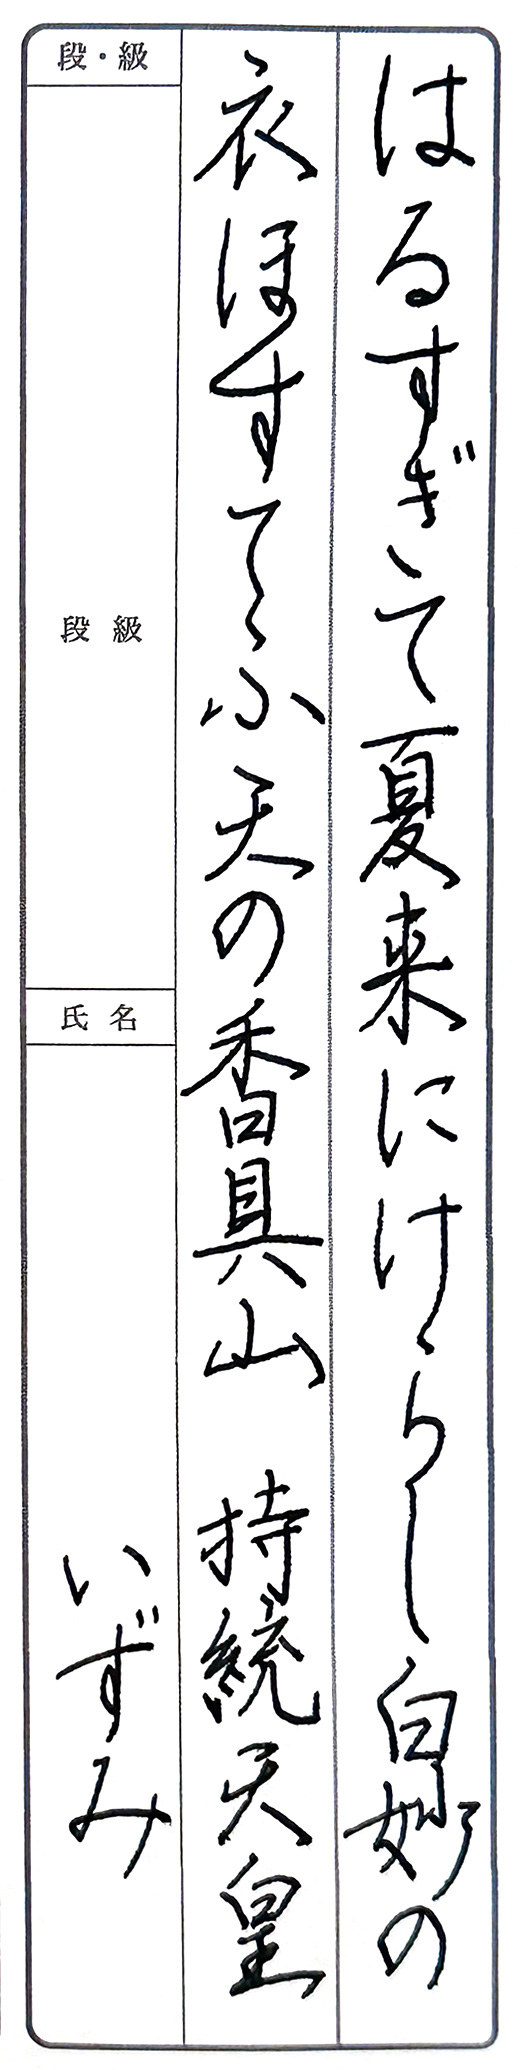 はるすぎて夏来にけらし白妙の
衣ほすてふ天の香具山 持統天皇
段・級
段 級
氏名
いずみ